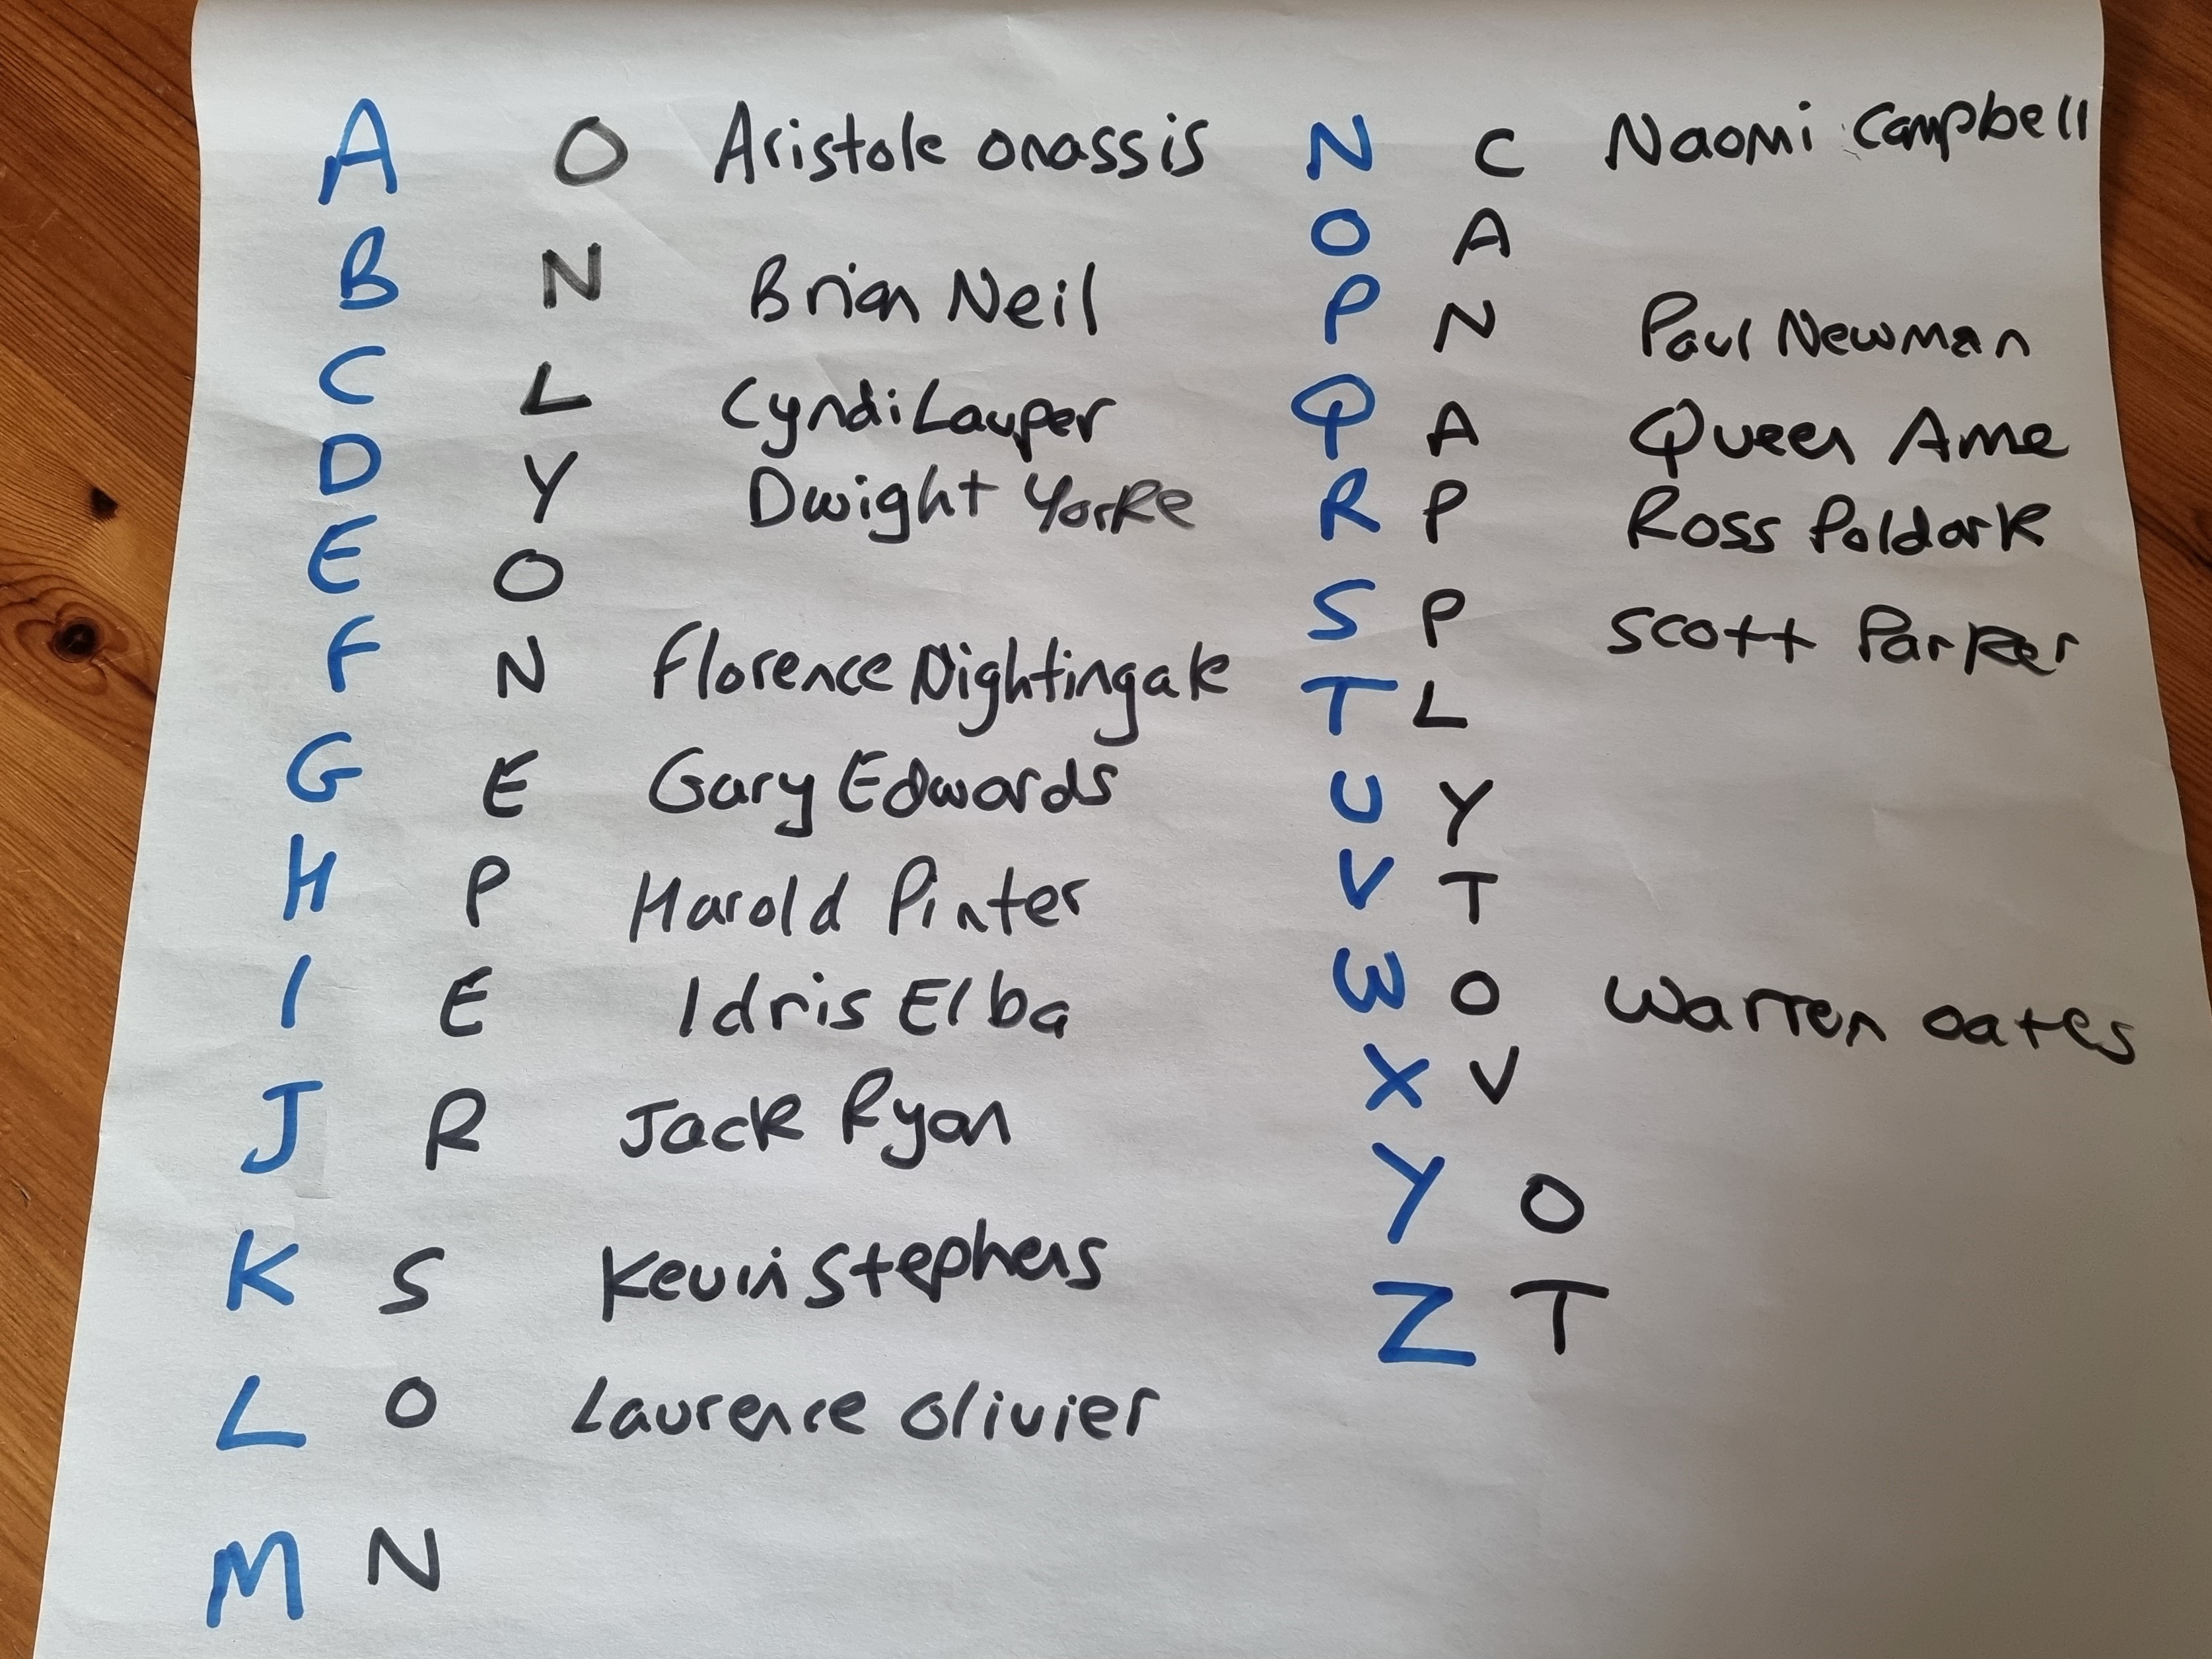 A O Aristole onassis
B N Brian Neil
C L Cyndi Lauper
D Y Dwight Yorke
E O
F N Florence Nightingale
G E Gary Edwards
H P Harold Pinter
I E Idris Elba
J R Jack Ryan
K S Kevin Stephens
L O Laurence Olivier
M N
N C Naomi Campbell
O A
P N Paul Newman
Q A Queen Anne
R P Ross Poldark
S P Scott Parker
T L
U Y
V T
W O Warren oates
X V
Y O
Z T